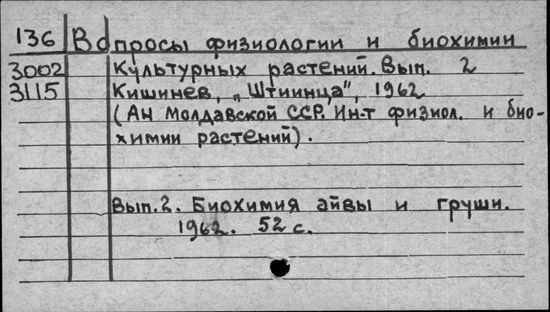 136 Вопросы физиологии и биохимии
3002 культурных растений. Вып. 2
3115 Кишинев, „Штиинца", 1962
(АН Молдавской ССР. Ин-т физиол. и био-
химии растений).
Вып. 2. Биохимия айвы и груши.
1962. 52 с.